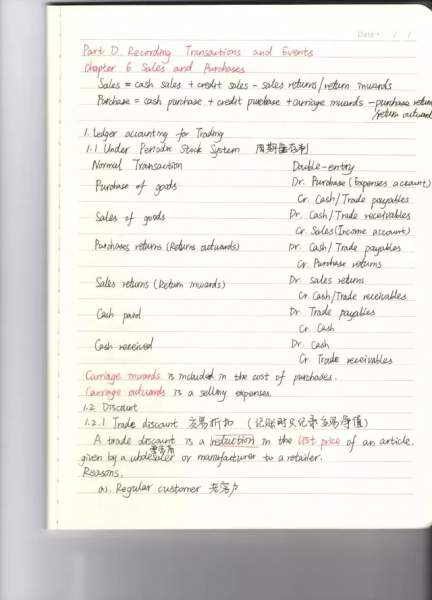 Date: / /
Part D Recording Transactions and Events
Chapter 6 Sales and Purchases
Sales = cash sales + credit sales - sales returns/return inwards
Purchase = cash purchase + credit purchase + carriage inwards - purchase return
/return outward
1. Ledger accounting for Trading
1.1 Under Periodic Stock System 周期盘存制
Normal Transaction Double-entry
Purchase of goods Dr. Purchase (Expenses account)
Cr. Cash/Trade payables
Sales of goods Dr. Cash/Trade receivables
Cr. Sales (Income account)
Purchases returns (Returns outwards) Dr. Cash/Trade payables
Cr. Purchase returns
Sales returns (Return inwards) Dr. sales returns
Cr. Cash/Trade receivables
Cash paid Dr. Trade payables
Cr. Cash
Cash received Dr. Cash
Cr. Trade receivables
Carriage inwards is included in the cost of purchases.
Carriage outwards is a selling expenses.
1.2 Discount
1.2.1 Trade discount 交易折扣 (记账时只记录交易净值)
A trade discount is a reduction in the list price of an article.
given by a wholesaler or manufacturer to a retailer.
Reasons.
a). Regular customer 老客户